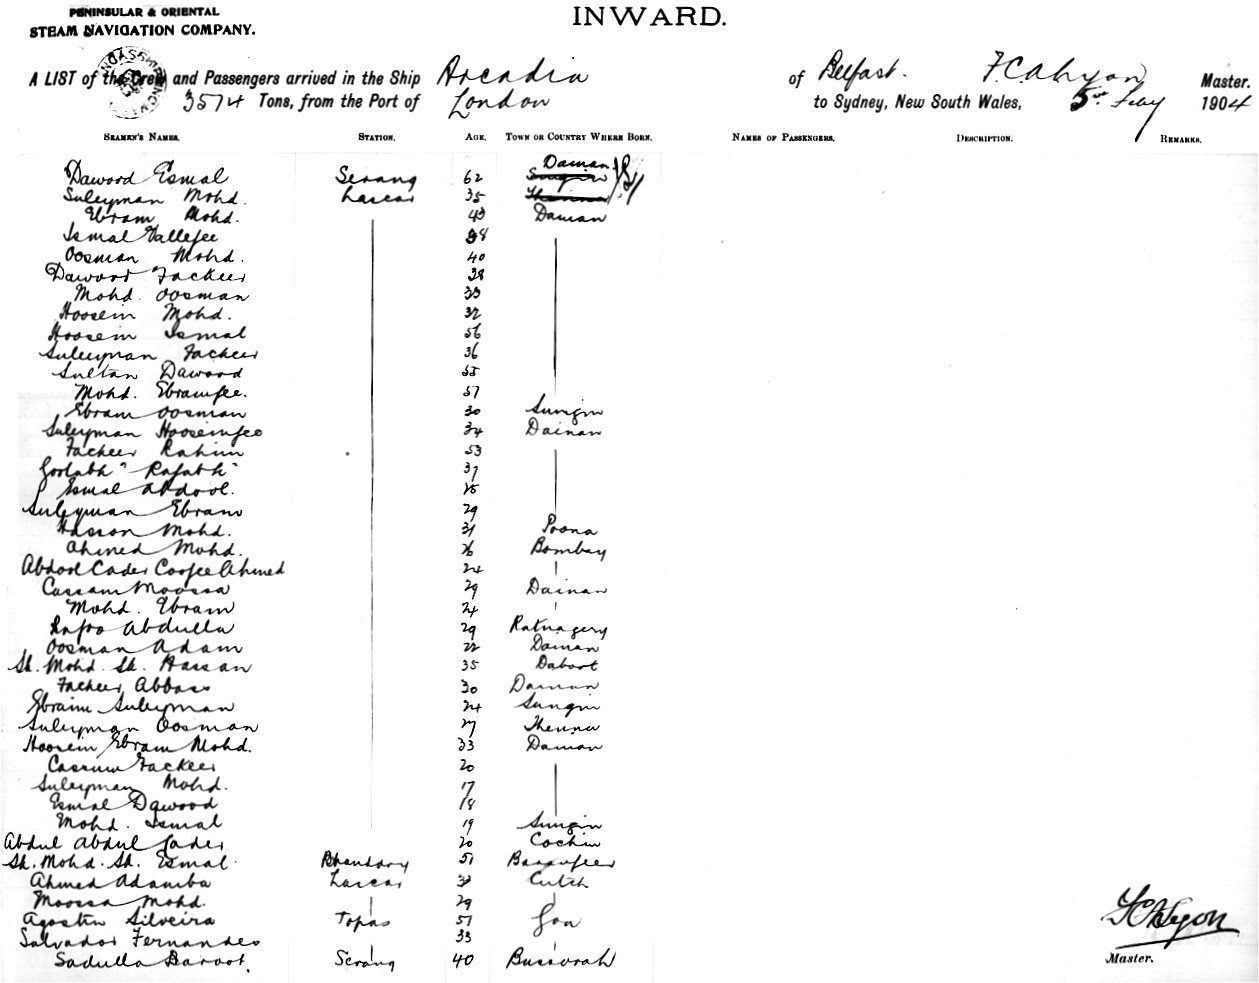 PENINSULAR & ORIENTAL
STEAM NAVIGATION COMPANY.
INWARD.
A LIST of the Crew and Passengers arrived in the Ship Arcadia of Belfast. Master.
3574 Tons, from the Port of London to Sydney, New South Wales, 5th Feby 1904
SEAMEN'S NAMES. STATION. AGE. TOWN OR COUNTRY WHERE BORN. NAMES OF PASSENGERS. DESCRIPTION. REMARKS.
Dawood Esmal Serang 62 Daman
Suleyman Mohd. Lascar 35
Ebram Mohd. 43 Daman
Ismal Vallejee 38
Oosman Mohd. 40
Dawood Fackeer 38
Mohd. Oosman 33
Hoosein Mohd. 32
Hoosein Ismal 56
Suleyman Facheer 36
Sultan Dawood 55
Mohd. Ebramjee. 57
Ebram Oosman 30 Sungin
Suleyman Hooseinjee 34 Daman
Facheer Rahim 53
"Rafabh" 37
Esmal Abdool.
Suleyman Ebram 29
Hasson Mohd. 31 Poona
Ahmed Mohd. 26 Bombay
Abdool Cader Ahmed 24
Cassam Moossa 29 Daman
Mohd. Ebram 24
Abdulla 29 Ratnagery
Oosman Adam 22 Daman
Sk. Mohd. Sk. Hassan 35
Facheer Abbass 30 Daman
Ebraim Suleyman 24 Sungin
Suleyman Oosman 27
Hoosein Ebram Mohd. 33 Daman
Cassum Fackeer 20
Suleyman Mohd. 17
Esmal Dawood 18
Mohd. Ismal 19 Sungin
Abdul Abdul 20 Cochin
Sk. Mohd. Sk. Esmal Bhandary 51
Ahmed Adamba Lascar Cutch
Moossa Mohd. 29
Agostin Silveira Topas 51 Goa
Salvador Fernandes 33
Sadulla Baroot. Serang 40 Bussorah
Master.